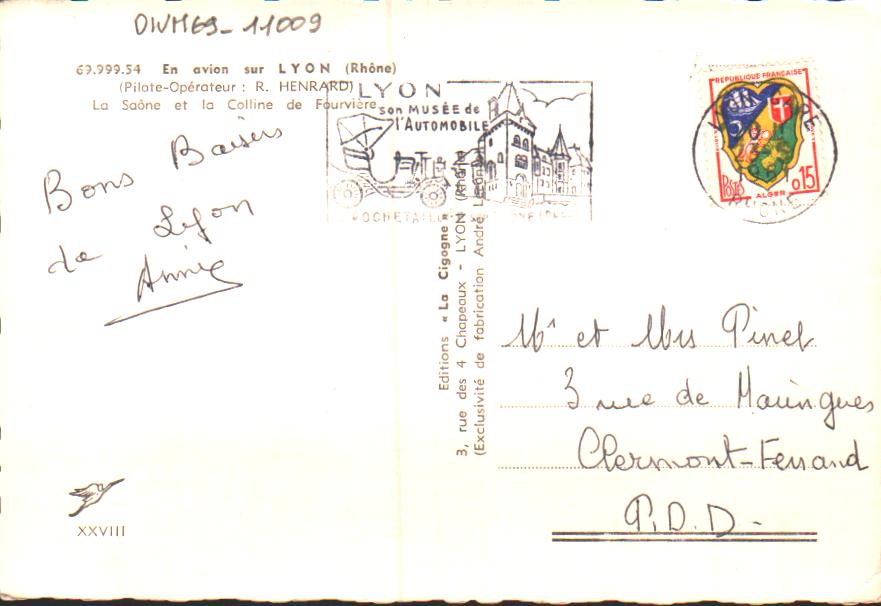 DIVM69-11009
69.999.54 En avion sur LYON (Rhône)
(Pilote-Opérateur : R. HENRARD)
La Saône et la Colline de Fourvière
Bons Baisers
de Lyon
Annie
XXVIII
LYON
son MUSÉE de
l'AUTOMOBILE
Editions « La Cigogne »
3, rue des 4 Chapeaux - LYON (Rhône
(Exclusivité de fabrication André
REPUBLIQUE FRANÇAISE
POSTES
ALGER
0,15
Mr et Mrs Pinel
3 rue de Maringues
Clermont-Ferrand
P.D.D-